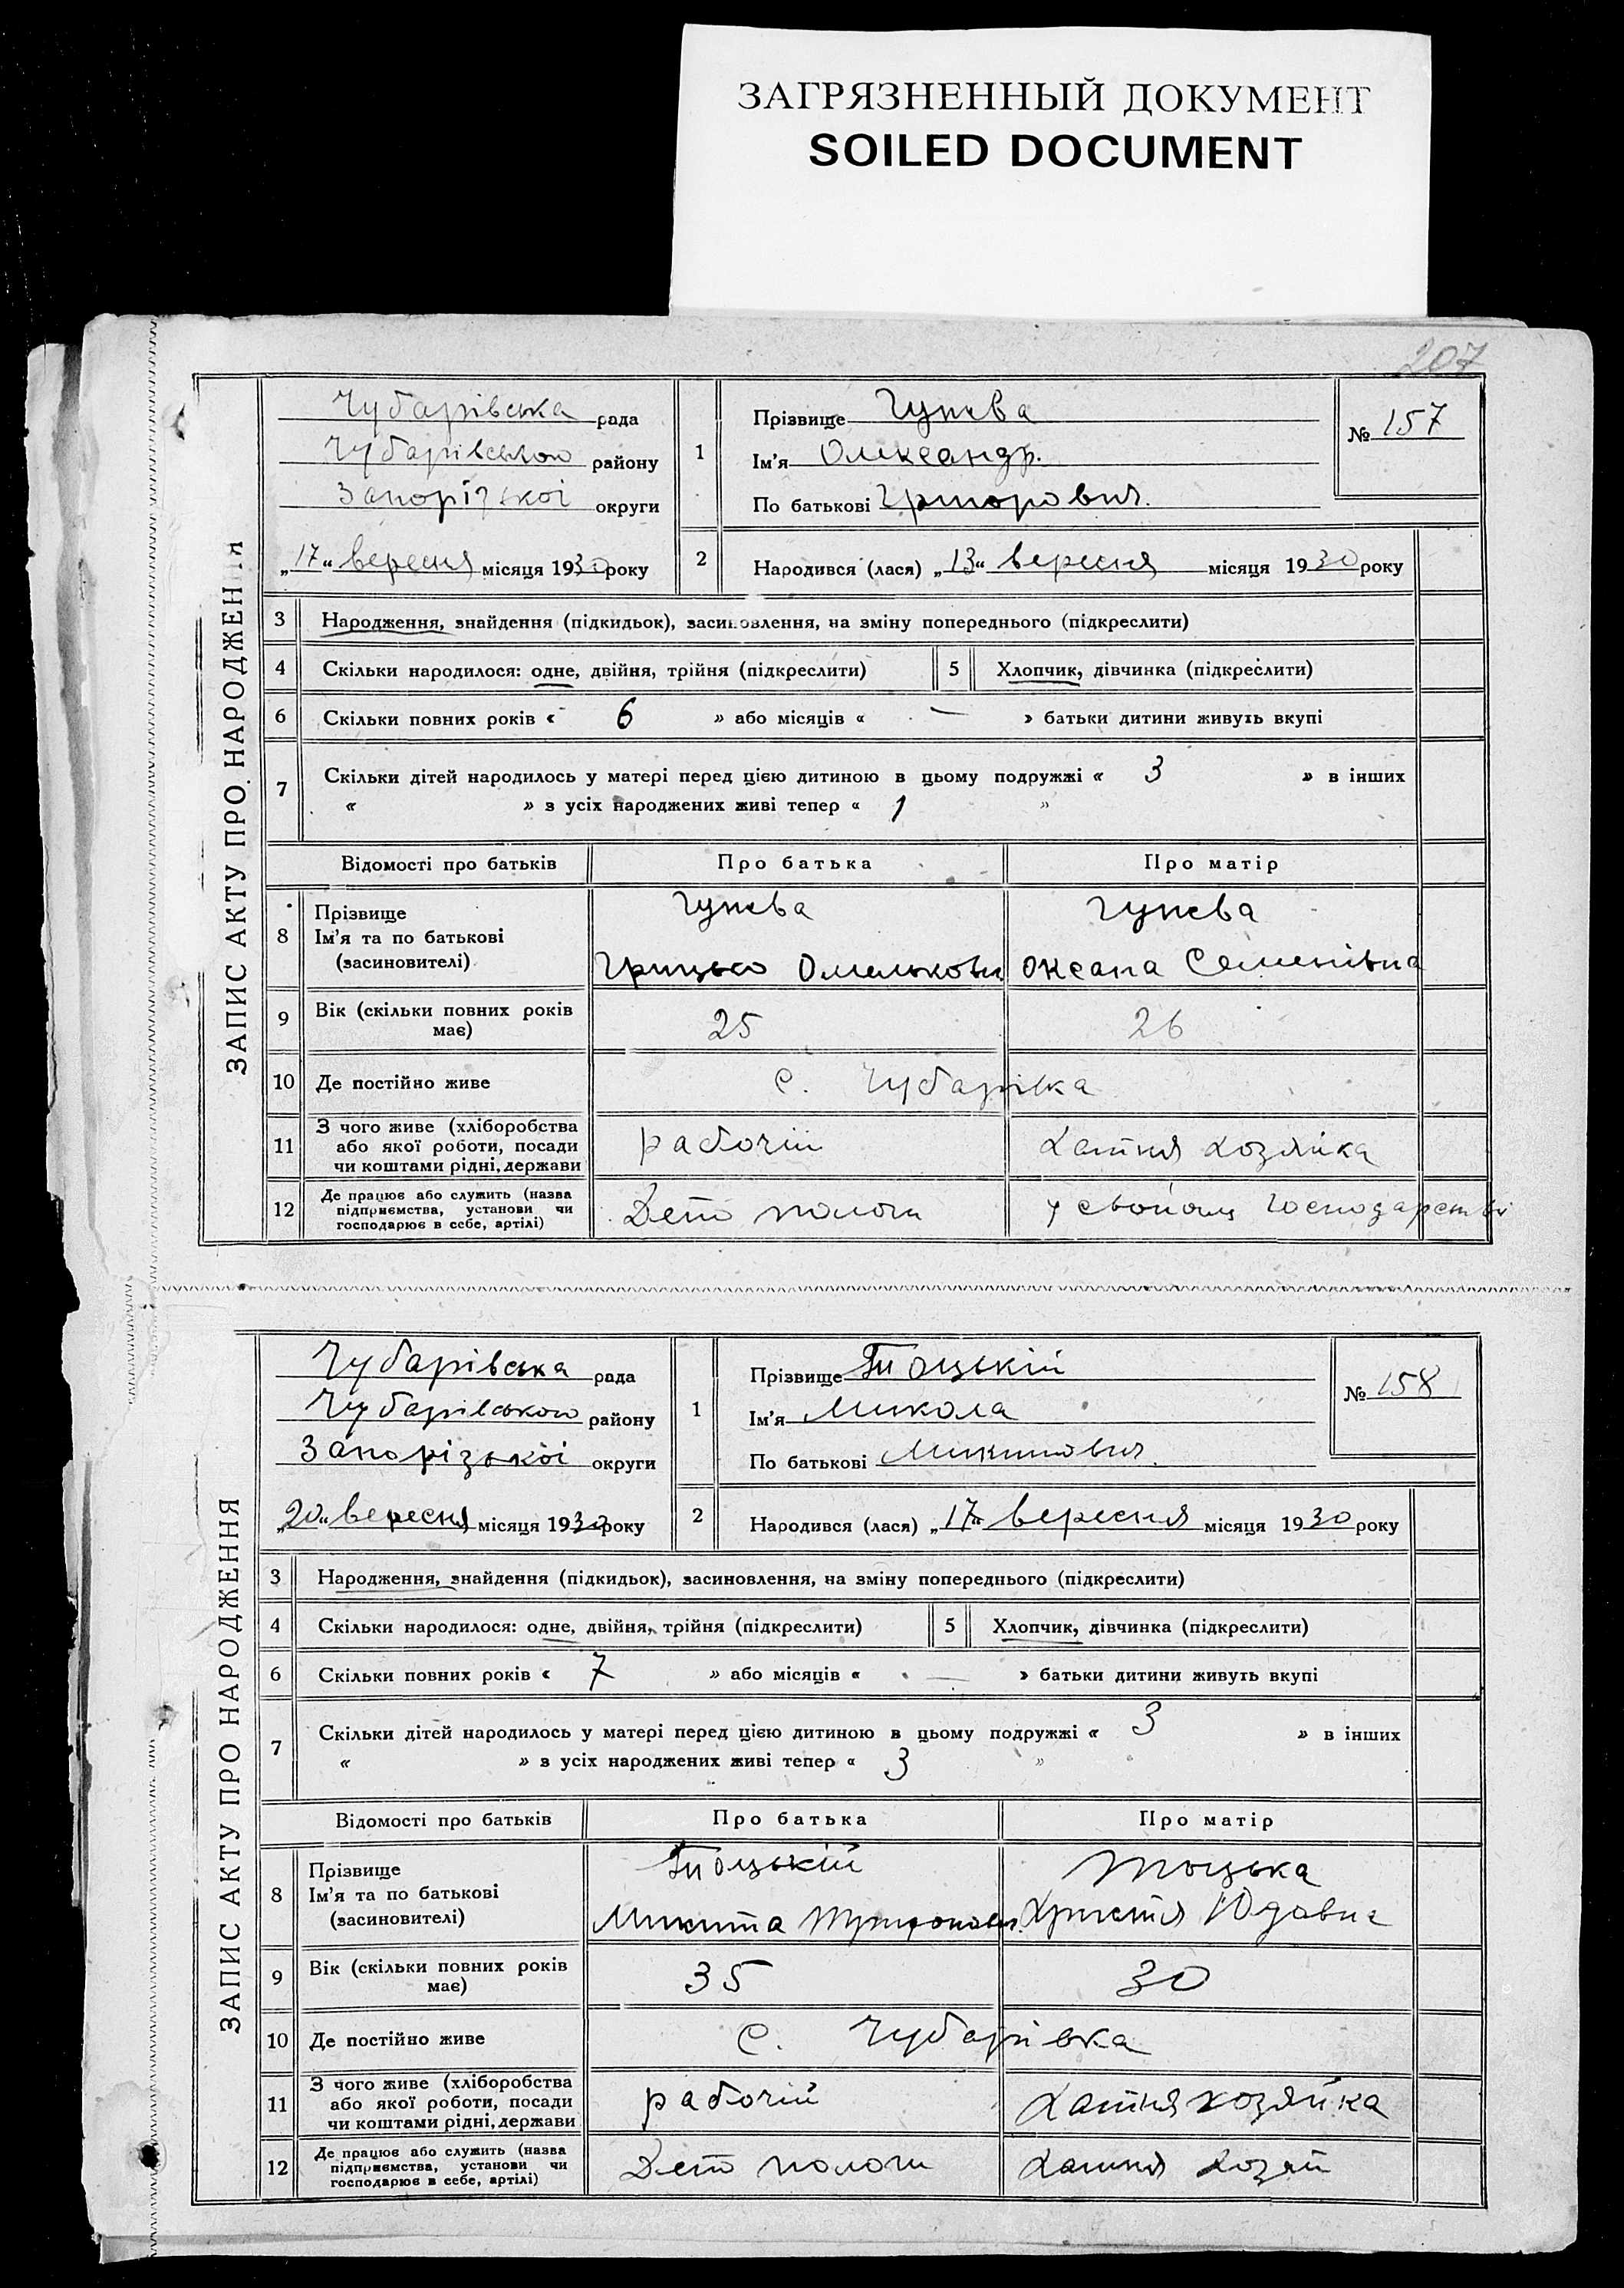 ЗАГРЯЗНЕННЫЙ ДОКУМЕНТ
SOILED DOCUMENT
207
ЗАПИС АКТУ ПРО НАРОДЖЕННЯ
Чубарівська рада
Чубарівського району
Запорізької округи
„17“ вересня місяця 1930 року
1
Прізвище
Ім'я Олександр.
По батькові Григорович.
№ 157
2
Народився (лася) „13“ вересня місяця 1930 року
3 Народження, знайдення (підкидьок), засиновлення, на зміну попереднього (підкреслити)
4 Скільки народилося: одне, двійня, трійня (підкреслити) 5 Хлопчик, дівчинка (підкреслити)
6 Скільки повних років « 6 » або місяців « — » батьки дитини живуть вкупі
7 Скільки дітей народилось у матері перед цією дитиною в цьому подружжі « 3 » в інших
« » з усіх народжених живі тепер « 1 »
Відомості про батьків Про батька Про матір
8 Прізвище
Ім'я та по батькові
(засиновителі)
Грицько Омелькови Оксана Семенівна
9 Вік (скільки повних років має) 25 26
10 Де постійно живе с. Чубарівка
11 З чого живе (хліборобства
або якої роботи, посади
чи коштами рідні, держави
рабочій хатня хозяйка
12 Де працює або служить (назва
підприємства, установи чи
господарює в себе, артілі)
Депо пологи у свойому господарстві
ЗАПИС АКТУ ПРО НАРОДЖЕННЯ
Чубарівська рада
Чубарівського району
Запорізької округи
„20“ вересня місяця 1930 року
1
Прізвище Тоцькій
Ім'я Микола
По батькові Микитович.
№ 158
2
Народився (лася) „17“ вересня місяця 1930 року
3 Народження, знайдення (підкидьок), засиновлення, на зміну попереднього (підкреслити)
4 Скільки народилося: одне, двійня, трійня (підкреслити) 5 Хлопчик, дівчинка (підкреслити)
6 Скільки повних років « 7 » або місяців « — » батьки дитини живуть вкупі
7 Скільки дітей народилось у матері перед цією дитиною в цьому подружжі « 3 » в інших
« » з усіх народжених живі тепер « 3 »
Відомості про батьків Про батька Про матір
8 Прізвище
Ім'я та по батькові
(засиновителі)
Тоцькій Тоцька
Микита Трифонович. Христя Юдовна
9 Вік (скільки повних років має) 35 30
10 Де постійно живе с. Чубарівка
11 З чого живе (хліборобства
або якої роботи, посади
чи коштами рідні, держави
рабочій хатня хозяйка
12 Де працює або служить (назва
підприємства, установи чи
господарює в себе, артілі)
Депо пологи хатня хозяй